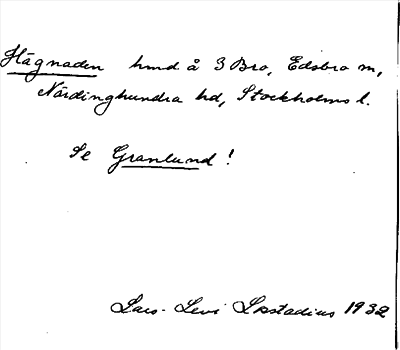 Hägnaden hmd å 3 Bro, Edsbro sn,
Närdinghundra hd, Stockholms l.
Se Granlund!
Lars-Levi Læstadius 1932